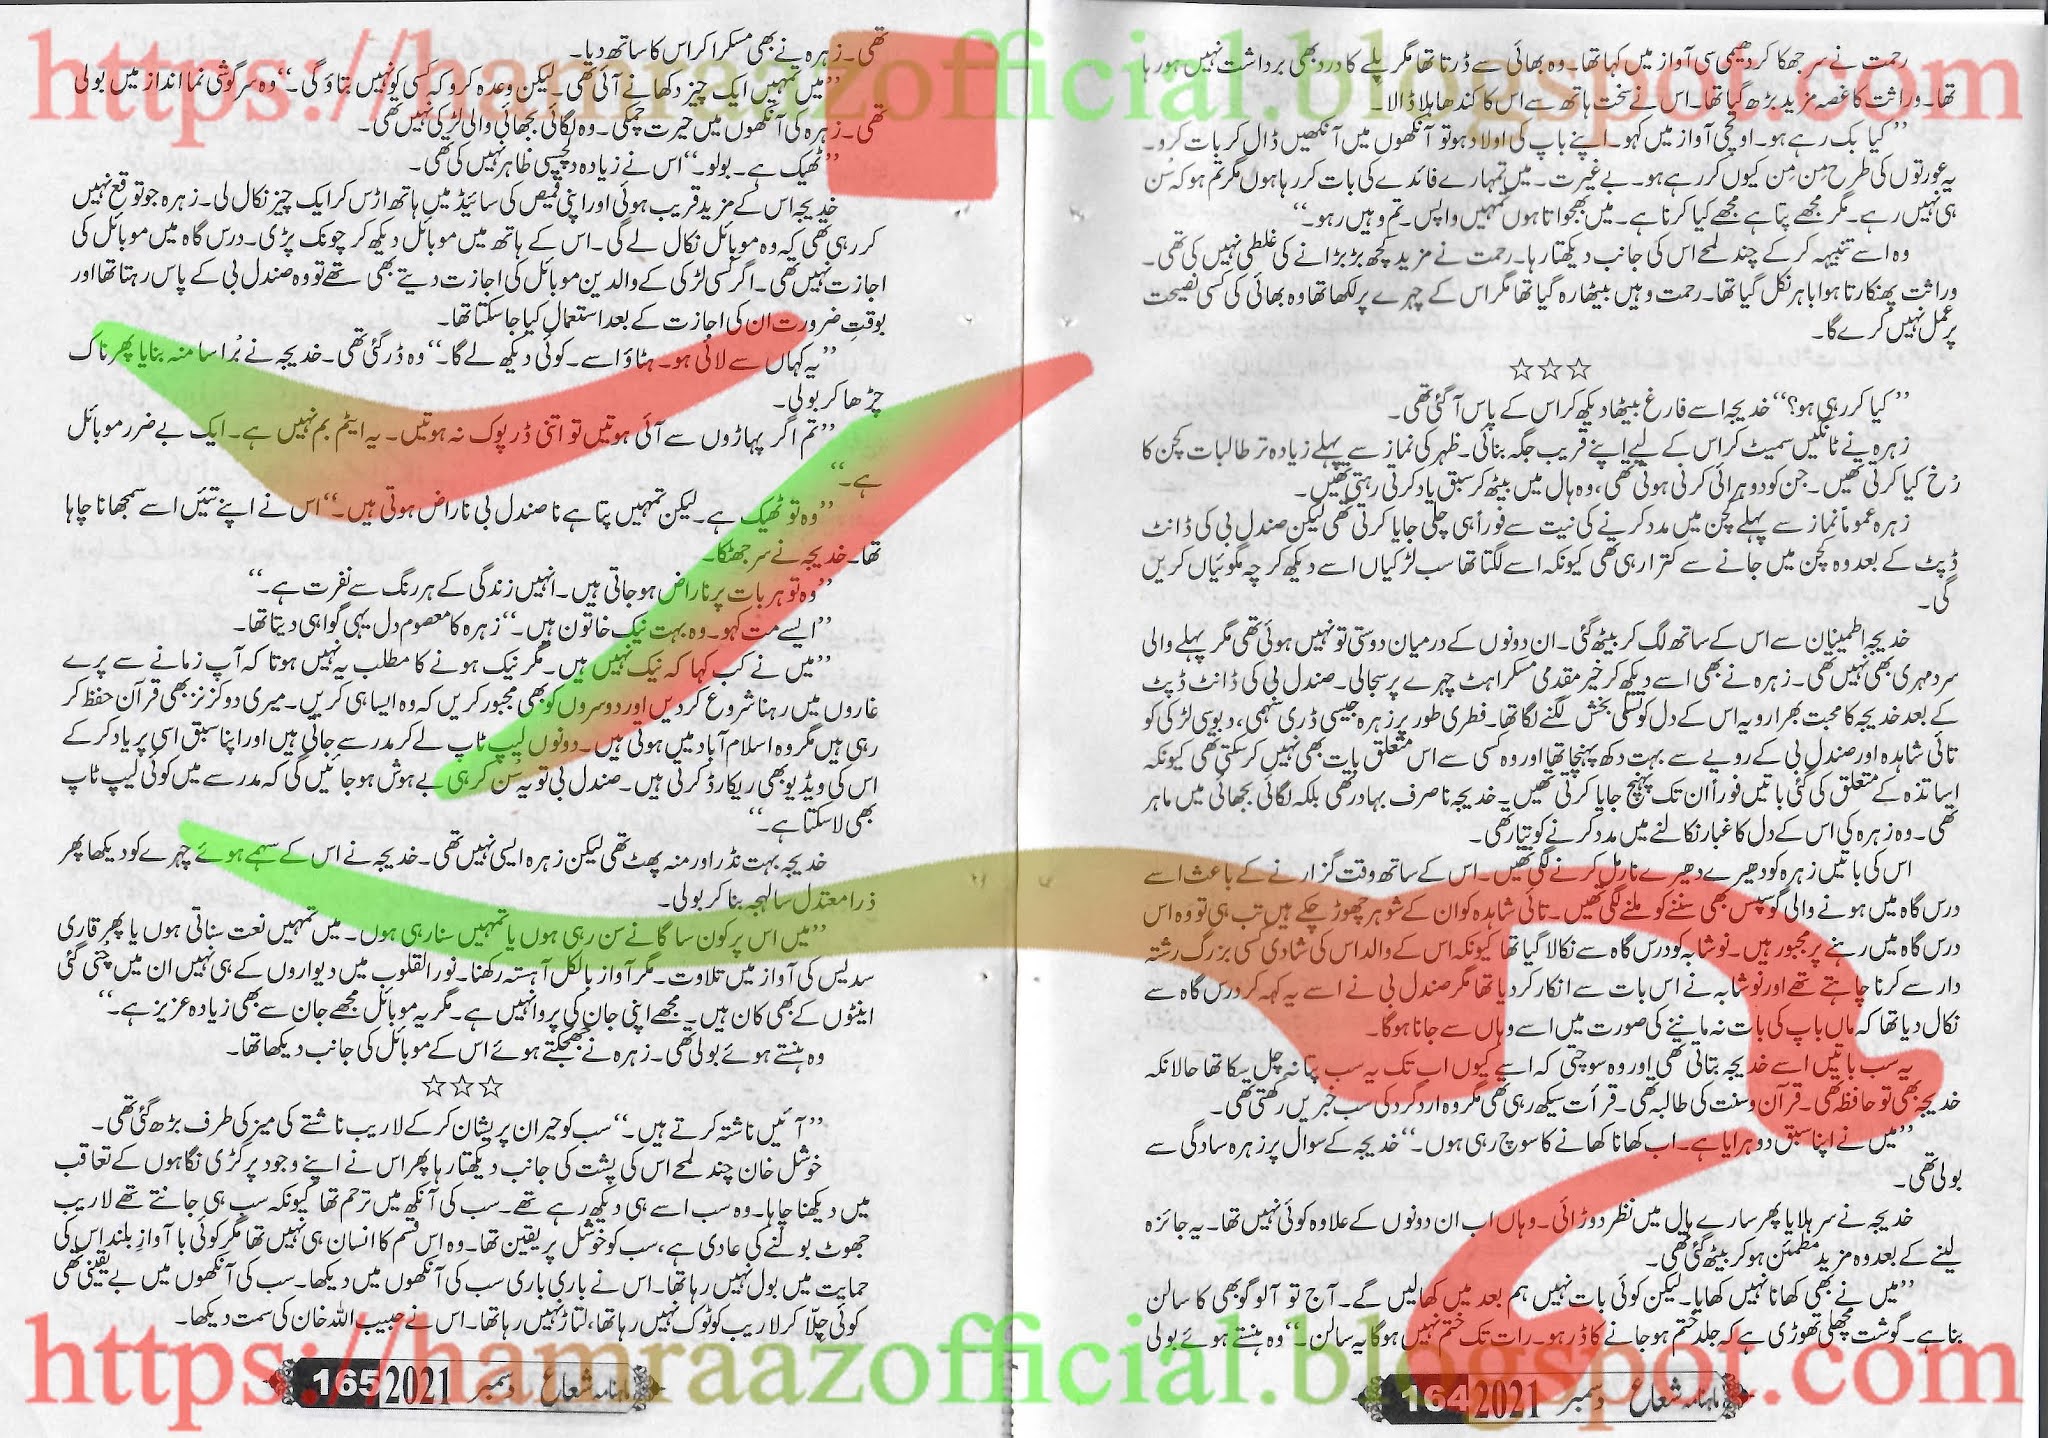 رحمت نے سر جھکا کر دھیمی سی آواز میں کہا تھا۔ وہ بھائی سے ڈرتا تھا مگر پلے کا درد بھی برداشت نہیں ہو رہا
تھا۔ وراثت کا غصہ مزید بڑھ گیا تھا۔ اس نے سخت ہاتھ سے اس کا کندھا ہلا ڈالا۔
”کیا بک رہے ہو۔ اونچی آواز میں کہو۔ اپنے باپ کی اولاد ہو تو آنکھوں میں آنکھیں ڈال کر بات کرو۔
یہ عورتوں کی طرح مِن مِن کیوں کر رہے ہو۔ بے غیرت۔ میں تمہارے فائدے کی بات کر رہا ہوں مگر تم ہو کہ سُن
ہی نہیں رہے۔ مگر مجھے پتا ہے مجھے کیا کرنا ہے۔ میں بھجواتا ہوں تمہیں واپس۔ تم وہیں رہو۔“
وہ اسے تنبیہہ کر کے چند لمحے اس کی جانب دیکھتا رہا۔ رحمت نے مزید کچھ بڑبڑانے کی غلطی نہیں کی تھی۔
وراثت پھنکارتا ہوا باہر نکل گیا تھا۔ رحمت وہیں بیٹھا رہ گیا تھا مگر اس کے چہرے پر لکھا تھا وہ بھائی کی کسی نصیحت
پر عمل نہیں کرے گا۔
☆☆☆
”کیا کر رہی ہو؟“ خدیجہ اسے فارغ بیٹھا دیکھ کر اس کے پاس آ گئی تھی۔
زہرہ نے ٹانگیں سمیٹ کر اس کے لیے اپنے قریب جگہ بنائی۔ ظہر کی نماز سے پہلے زیادہ تر طالبات کچن کا
رُخ کیا کرتی تھیں۔ جن کو دوہرائی کرنی ہوتی تھی، وہ ہال میں بیٹھ کر سبق یاد کرتی رہتی تھیں۔
زہرہ عموماً نماز سے پہلے کچن میں مدد کرنے کی نیت سے فوراً ہی چلی جایا کرتی تھی لیکن صندل بی کی ڈانٹ
ڈپٹ کے بعد وہ کچن میں جانے سے کترا رہی تھی کیونکہ اسے لگتا تھا سب لڑکیاں اسے دیکھ کر چہ مگوئیاں کریں
گی۔
خدیجہ اطمینان سے اس کے ساتھ لگ کر بیٹھ گئی۔ ان دونوں کے درمیان دوستی تو نہیں ہوئی تھی مگر پہلے والی
سرد مہری بھی نہیں تھی۔ زہرہ نے بھی اسے دیکھ کر خیر مقدمی مسکراہٹ چہرے پر سجا لی۔ صندل بی کی ڈانٹ ڈپٹ
کے بعد خدیجہ کا محبت بھرا رویہ اس کے دل کو تسلی بخش لگنے لگا تھا۔ فطری طور پر زہرہ جیسی ڈری سہمی، دبو سی لڑکی کو
تائی شاہدہ اور صندل بی کے رویے سے بہت دکھ پہنچا تھا اور وہ کسی سے اس متعلق بات بھی نہیں کر سکتی تھی کیونکہ
اساتذہ کے متعلق کی گئی باتیں فوراً ان تک پہنچ جایا کرتی تھیں۔ خدیجہ نا صرف بہادر تھی بلکہ لگائی بجھائی میں ماہر
تھی۔ وہ زہرہ کی اس کے دل کا غبار نکالنے میں مدد کرنے کو تیار تھی۔
اس کی باتیں زہرہ کو دھیرے دھیرے نارمل کرنے لگی تھیں۔ اس کے ساتھ وقت گزارنے کے باعث اسے
درس گاہ میں ہونے والی گوسپس بھی سننے کو ملنے لگی تھیں۔ تائی شاہدہ کو ان کے شوہر چھوڑ چکے ہیں تب ہی تو وہ اس
درس گاہ میں رہنے پر مجبور ہیں۔ نوشابہ کو درس گاہ سے نکالا گیا تھا کیونکہ اس کے والد اس کی شادی کسی بزرگ رشتہ
دار سے کرنا چاہتے تھے اور نوشابہ نے اس بات سے انکار کر دیا تھا مگر صندل بی نے اسے یہ کہہ کر درس گاہ سے
نکال دیا تھا کہ ماں باپ کی بات نہ ماننے کی صورت میں اسے وہاں سے جانا ہوگا۔
یہ سب باتیں اسے خدیجہ بتاتی تھی اور وہ سوچتی کہ اسے کیوں اب تک یہ سب پتا نہ چل سکا تھا حالانکہ
خدیجہ بھی تو حافظہ تھی۔ قرآن و سنت کی طالبہ تھی۔ قرأت سیکھ رہی تھی مگر وہ ارد گرد کی سب خبریں رکھتی تھی۔
”میں نے اپنا سبق دوہرایا ہے۔ اب کھانا کھانے کا سوچ رہی ہوں۔“ خدیجہ کے سوال پر زہرہ سادگی سے
بولی تھی۔
خدیجہ نے سر ہلایا پھر سارے ہال میں نظر دوڑائی۔ وہاں اب ان دونوں کے علاوہ کوئی نہیں تھا۔ یہ جائزہ
لینے کے بعد وہ مزید مطمئن ہو کر بیٹھ گئی تھی۔
”میں نے بھی کھانا نہیں کھایا۔ لیکن کوئی بات نہیں ہم بعد میں کھا لیں گے۔ آج تو آلو گوبھی کا سالن
بنا ہے۔ گوشت مچھلی تھوڑی ہے کہ جلد ختم ہو جانے کا ڈر ہو۔ رات تک ختم نہیں ہوگا یہ سالن۔“ وہ ہنستے ہوئے بولی
ماہنامہ شعاع دسمبر 2021 164
تھی۔ زہرہ نے بھی مسکرا کر اس کا ساتھ دیا۔
”میں تمہیں ایک چیز دکھانے آئی تھی۔ لیکن وعدہ کرو کہ کسی کو نہیں بتاؤ گی۔“ وہ سرگوشی نما انداز میں بولی
تھی۔ زہرہ کی آنکھوں میں حیرت چمکی۔ وہ لگائی بجھائی والی لڑکی نہیں تھی۔
”ٹھیک ہے۔ بولو۔“ اس نے زیادہ دلچسپی ظاہر نہیں کی تھی۔
خدیجہ اس کے مزید قریب ہوئی اور اپنی قمیص کی سائیڈ میں ہاتھ اڑس کر ایک چیز نکال لی۔ زہرہ جو توقع نہیں
کر رہی تھی کہ وہ موبائل نکال لے گی۔ اس کے ہاتھ میں موبائل دیکھ کر چونک پڑی۔ درس گاہ میں موبائل کی
اجازت نہیں تھی۔ اگر کسی لڑکی کے والدین موبائل کی اجازت دیتے بھی تھے تو وہ صندل بی کے پاس رہتا تھا اور
بوقتِ ضرورت ان کی اجازت کے بعد استعمال کیا جا سکتا تھا۔
”یہ کہاں سے لائی ہو۔ ہٹاؤ اسے۔ کوئی دیکھ لے گا۔“ وہ ڈر گئی تھی۔ خدیجہ نے بُرا سا منہ بنایا پھر ناک
چڑھا کر بولی۔
”تم اگر پہاڑوں سے آئی ہوتیں تو اتنی ڈرپوک نہ ہوتیں۔ یہ ایٹم بم نہیں ہے۔ ایک بے ضرر موبائل
ہے۔“
”وہ تو ٹھیک ہے۔ لیکن تمہیں پتا ہے نا صندل بی ناراض ہوتی ہیں۔“ اس نے اپنے تئیں اسے سمجھانا چاہا
تھا۔ خدیجہ نے سر جھٹکا۔
”وہ تو ہر بات پر ناراض ہو جاتی ہیں۔ انہیں زندگی کے ہر رنگ سے نفرت ہے۔“
”ایسے مت کہو۔ وہ بہت نیک خاتون ہیں۔“ زہرہ کا معصوم دل یہی گواہی دیتا تھا۔
”میں نے کب کہا کہ نیک نہیں ہیں۔ مگر نیک ہونے کا مطلب یہ نہیں ہوتا کہ آپ زمانے سے پرے
غاروں میں رہنا شروع کر دیں اور دوسروں کو بھی مجبور کریں کہ وہ ایسا ہی کریں۔ میری دو کزنز بھی قرآن حفظ کر
رہی ہیں مگر وہ اسلام آباد میں ہوتی ہیں۔ دونوں لیپ ٹاپ لے کر مدرسے جاتی ہیں اور اپنا سبق اسی پر یاد کر کے
اس کی ویڈیو بھی ریکارڈ کرتی ہیں۔ صندل بی تو یہ سن کر ہی بے ہوش ہو جائیں گی کہ مدرسے میں کوئی لیپ ٹاپ
بھی لا سکتا ہے۔“
خدیجہ بہت نڈر اور منہ پھٹ تھی لیکن زہرہ ایسی نہیں تھی۔ خدیجہ نے اس کے سہمے ہوئے چہرے کو دیکھا پھر
ذرا معتدل سا لہجہ بنا کر بولی۔
”میں اس پر کون سا گانے سن رہی ہوں یا تمہیں سنا رہی ہوں۔ میں تمہیں نعت سناتی ہوں یا پھر قاری
سدیس کی آواز میں تلاوت۔ مگر آواز بالکل آہستہ رکھنا۔ نور القلوب میں دیواروں کے ہی نہیں ان میں چُنی گئی
اینٹوں کے بھی کان ہیں۔ مجھے اپنی جان کی پروا نہیں ہے۔ مگر یہ موبائل مجھے جان سے بھی زیادہ عزیز ہے۔“
وہ ہنستے ہوئے بولی تھی۔ زہرہ نے جھجکتے ہوئے اس کے موبائل کی جانب دیکھا تھا۔
☆☆☆
”آئیں ناشتہ کرتے ہیں۔“ سب کو حیران پریشان کر کے لاریب ناشتے کی میز کی طرف بڑھ گئی تھی۔
خوشل خان چند لمحے اس کی پشت کی جانب دیکھتا رہا پھر اس نے اپنے وجود پر گڑی نگاہوں کے تعاقب
میں دیکھنا چاہا۔ وہ سب اسے ہی دیکھ رہے تھے۔ سب کی آنکھ میں ترحم تھا کیونکہ سب ہی جانتے تھے لاریب
جھوٹ بولنے کی عادی ہے، سب کو خوشل پر یقین تھا۔ وہ اس قسم کا انسان ہی نہیں تھا مگر کوئی با آوازِ بلند اس کی
حمایت میں بول نہیں رہا تھا۔ اس نے باری باری سب کی آنکھوں میں دیکھا۔ سب کی آنکھوں میں بے یقینی تھی
کوئی چلّا کر لاریب کو ٹوک نہیں رہا تھا، لتاڑ نہیں رہا تھا۔ اس نے حبیب اللہ خان کی سمت دیکھا۔
ماہنامہ شعاع دسمبر 2021 165
https://hamraazofficial.blogspot.com
https://hamraazofficial.blogspot.com